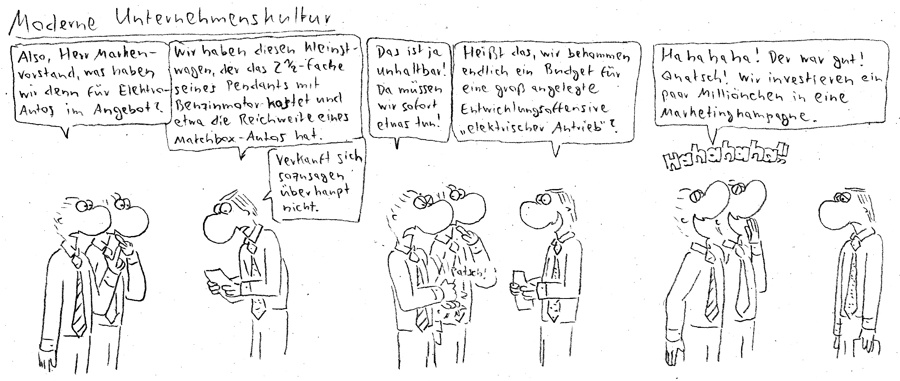 Moderne Unternehmenskultur
Also, Herr Marken-
vorstand, was haben
wir denn für Elektro-
Autos im Angebot?
Wir haben diesen Kleinst-
wagen, der das 2 1/2-fache
seines Pendants mit
Benzinmotor kostet und
etwa die Reichweite eines
Matchbox-Autos hat.
Verkauft sich
sozusagen
überhaupt
nicht.
Das ist ja
unhaltbar!
Da müssen
wir sofort
etwas tun!
Patsch!
Heißt das, wir bekommen
endlich ein Budget für
eine groß angelegte
Entwicklungsoffensive
"elektrischer Antrieb"?
Hahahaha! Der war gut!
Quatsch! Wir investieren ein
paar Milliönchen in eine
Marketingkampagne.
Hahahaha!!